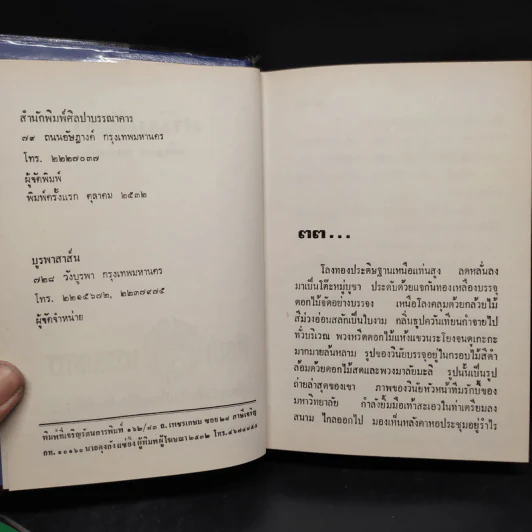 สำนักพิมพ์ศิลปาบรรณาคาร
๗๙ ถนนอัษฎางค์ กรุงเทพมหานคร
โทร. ๒๒๒๗๐๓๗
ผู้จัดพิมพ์
พิมพ์ครั้งแรก ตุลาคม ๒๕๓๒
บูรพาสาส์น
๗๒๘ วังบูรพา กรุงเทพมหานคร
โทร. ๒๒๑๕๖๗๒, ๒๒๓๗๙๗๕
ผู้จัดจำหน่าย
พิมพ์ที่เจริญรัตนการพิมพ์ ๑๖๒/๘๓ ถ. เพชรเกษม ซอย ๒๘ ภาษีเจริญ
กท. ๑๐๑๖๐ ผู้พิมพ์ผู้โฆษณา ๒๕๓๒ โทร.
๓๓...
โลงทองประดิษฐานเหนือแท่นสูง ลดหลั่นลง
มาเป็นโต๊ะหมู่บูชา ประดับด้วยแจกันทองเหลืองบรรจุ
ดอกไม้จัดอย่างบรรจง เหนือโลงคลุมด้วยกล้วยไม้
สีม่วงอ่อนสลักเป็นใบงาม กลิ่นธูปควันเทียนกำจายไป
ทั่วบริเวณ พวงหรีดดอกไม้แห้งแขวนระโยงจนดูเกะกะ
มากมายล้นหลาม รูปของวินัยบรรจุอยู่ในกรอบไม้สีดำ
ล้อมด้วยดอกไม้สดและพวงมาลัยมะลิ รูปนั้นเป็นรูป
ถ่ายล่าสุดของเขา ภาพของวินัยหัวหน้าทีมรักบี้ของ
มหาวิทยาลัย กำลังยิ้มมือเท้าสะเอวในท่าเตรียมลง
สนาม ไกลออกไป มองเห็นหลังคาหอประชุมอยู่รำไร